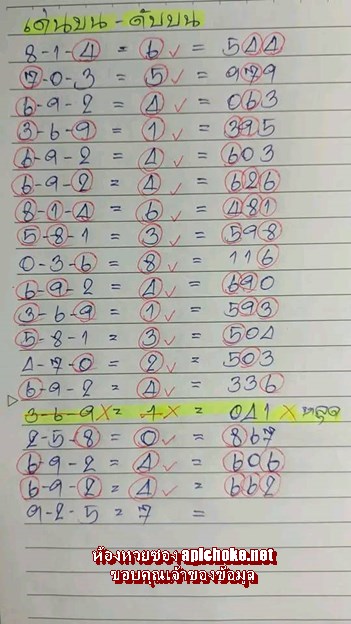 เด่นบน - ดับบน
8-1-4 = 6 ✓ = 544
7-0-3 = 5 ✓ = 979
6-9-2 = 4 ✓ = 063
3-6-9 = 1 ✓ = 395
6-9-2 = 4 ✓ = 603
6-9-2 = 4 ✓ = 626
8-1-4 = 6 ✓ = 481
5-8-1 = 3 ✓ = 598
0-3-6 = 8 ✓ = 116
6-9-2 = 4 ✓ = 690
3-6-9 = 1 ✓ = 593
5-8-1 = 3 ✓ = 504
4-7-0 = 2 ✓ = 503
6-9-2 = 4 ✓ = 336
3-6-9 X = 1 X = 041 X หลุด
2-5-8 = 0 ✓ = 867
6-9-2 = 4 ✓ = 606
6-9-2 = 4 ✓ = 662
9-2-5 = 7 =
ห้องหวยซอง apichoke.net
ขอบคุณเจ้าของข้อมูล